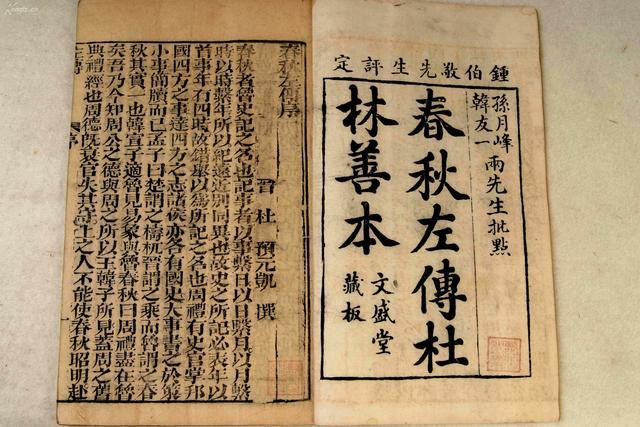 鍾伯敬先生評定
孫月峰
韓友一
兩先生批點
春秋左傳杜
林善本
文盛堂
藏板
春秋左傳序
晉 杜 預元凱 撰
春秋者魯史記之名也記事者以事繫日以日繫月以月繫
時以時繫年所以紀遠近別同異也故史之所記必表年以
首事年有四時故錯舉以爲所記之名也周禮有史官掌邦
國四方之事達四方之志諸侯亦各有國史大事書之於策
小事簡牘而已孟子曰楚謂之檮杌晉謂之乘而魯謂之春
秋其實一也韓宣子適魯見易象與魯春秋曰周禮盡在魯
矣吾乃今知周公之德與周之所以王韓子所見蓋周之舊
典禮經也周德旣衰官失其守上之人不能使春秋昭明赴
序